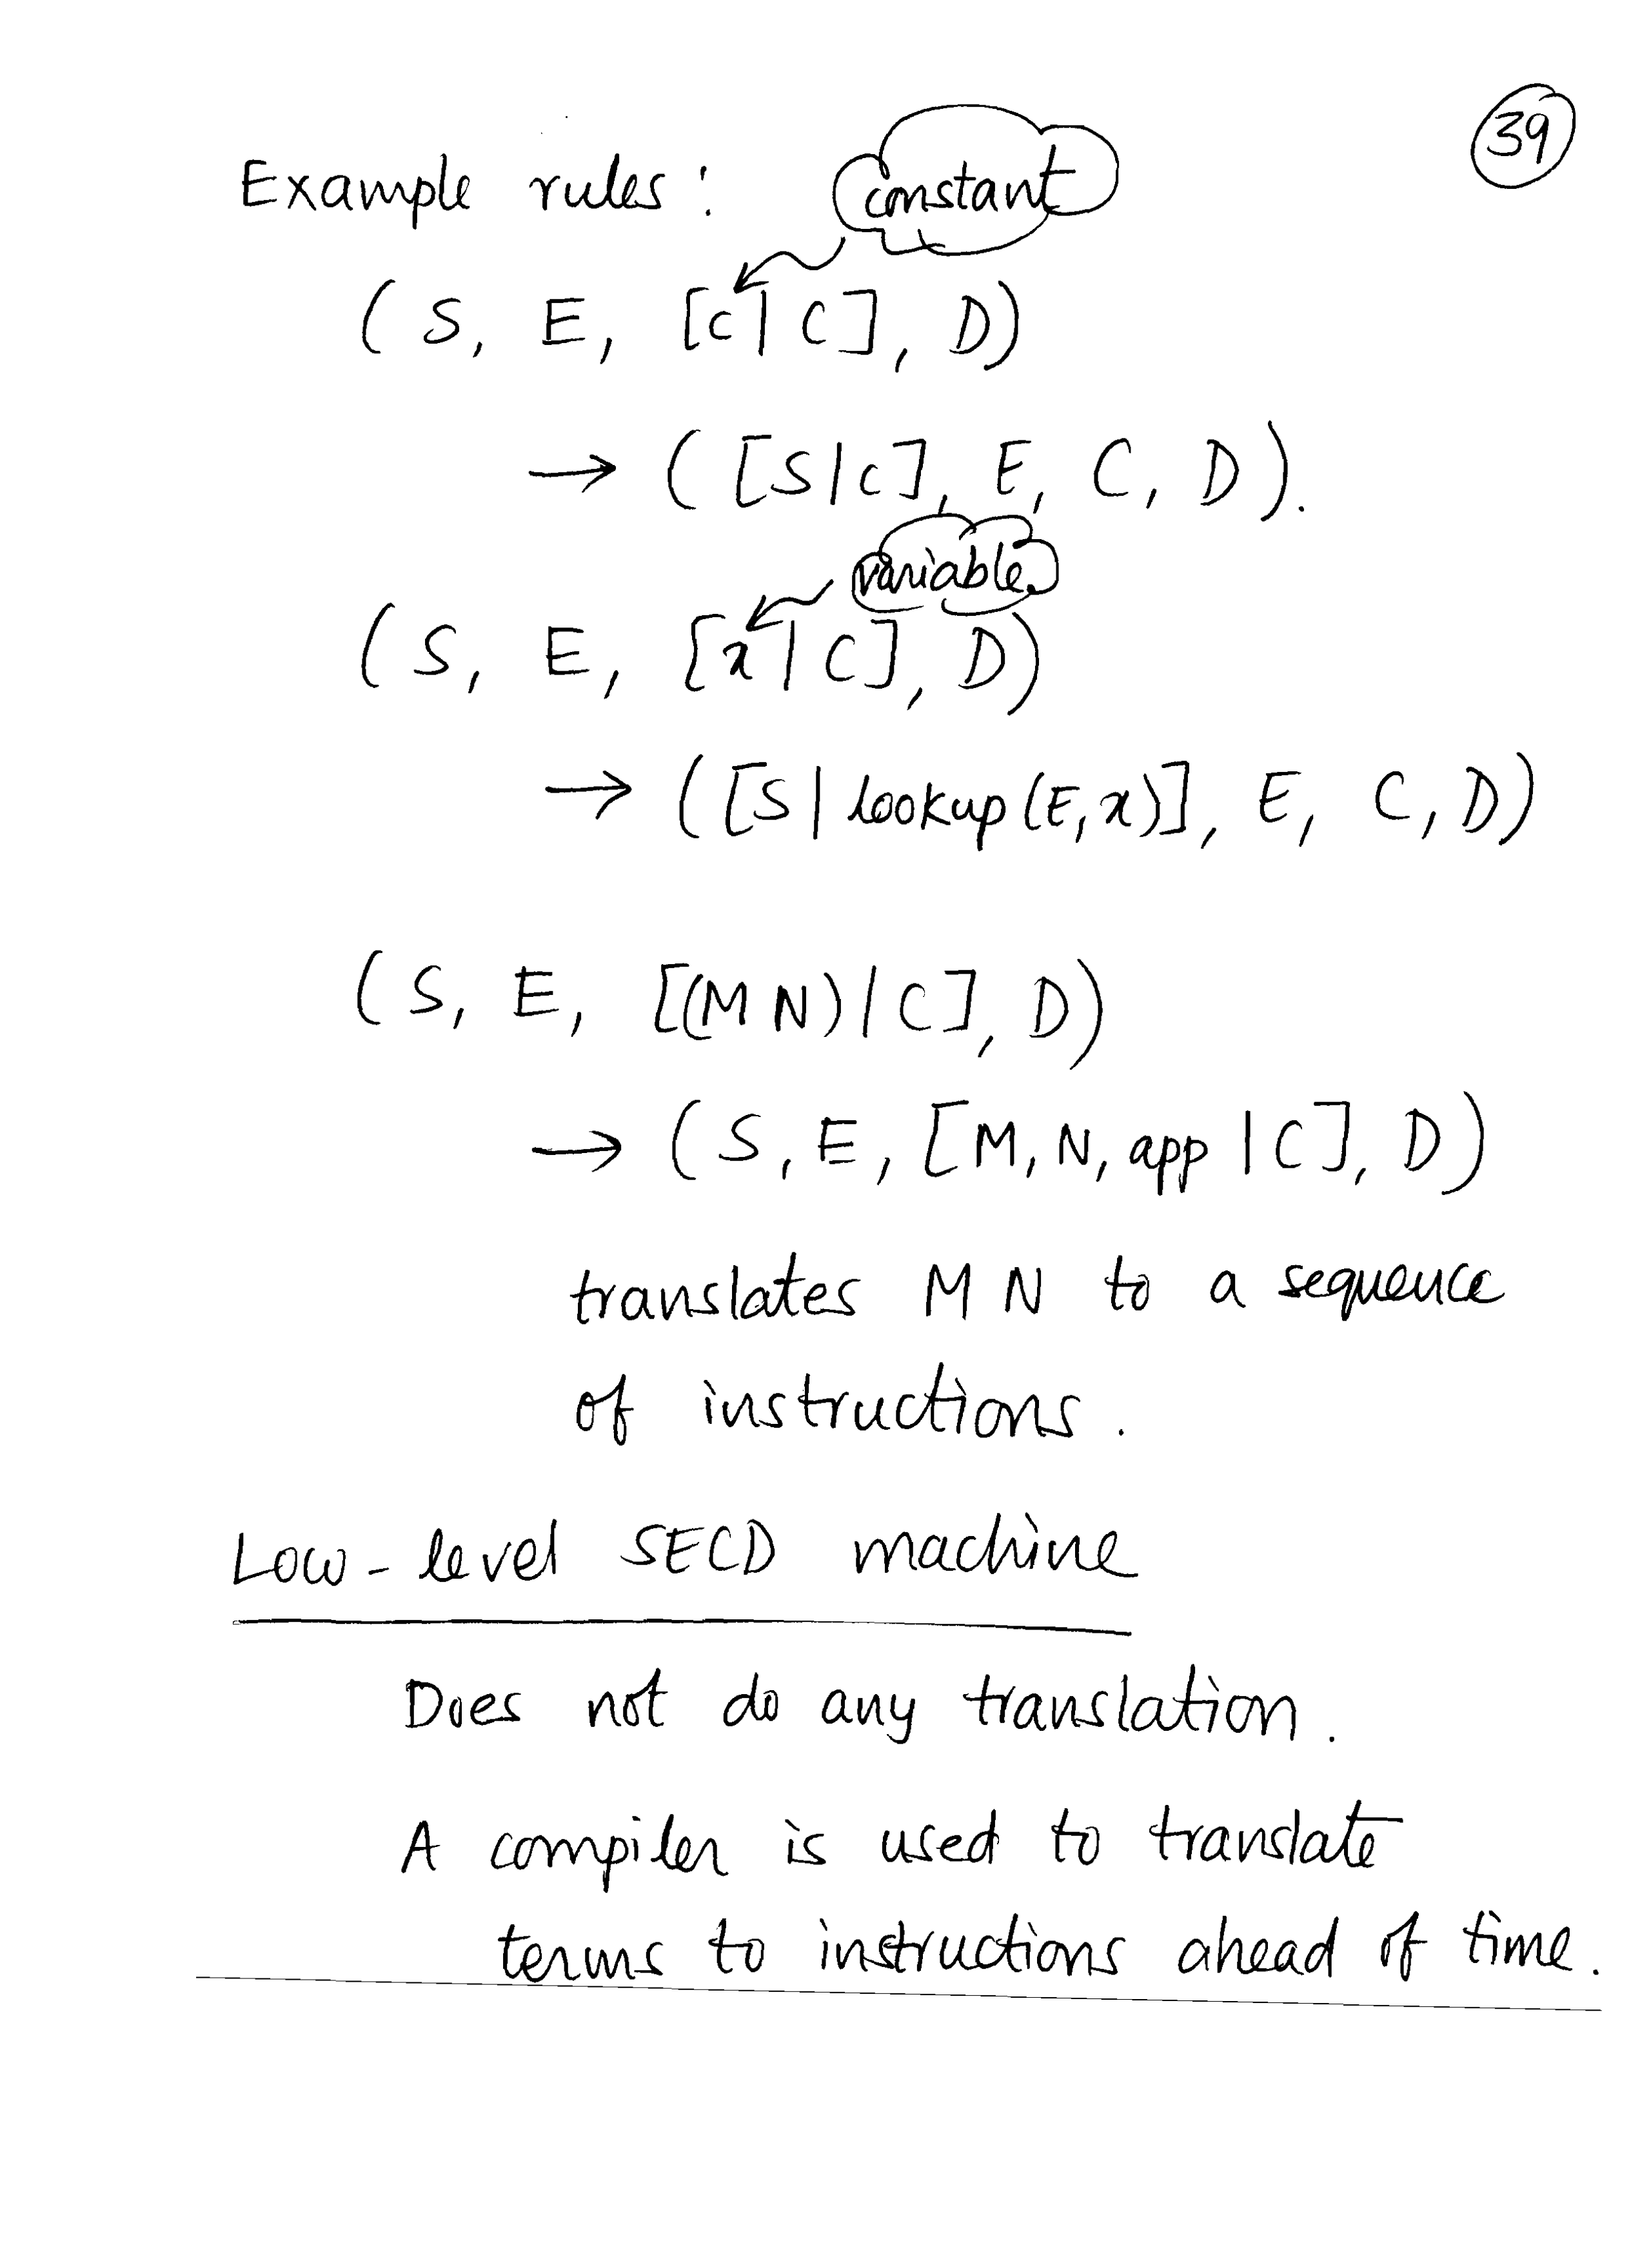 39
Example rules : constant
( S, E, [c | C], D)
→ ( [S | c], E, C, D ).
variable
( S, E, [x | C], D)
→ ([S | lookup (E, x)], E, C, D)
( S, E, [(M N) | C], D)
→ ( S, E, [M, N, app | C], D )
translates M N to a sequence
of instructions .
Low-level SECD machine
Does not do any translation.
A compiler is used to translate
terms to instructions ahead of time.